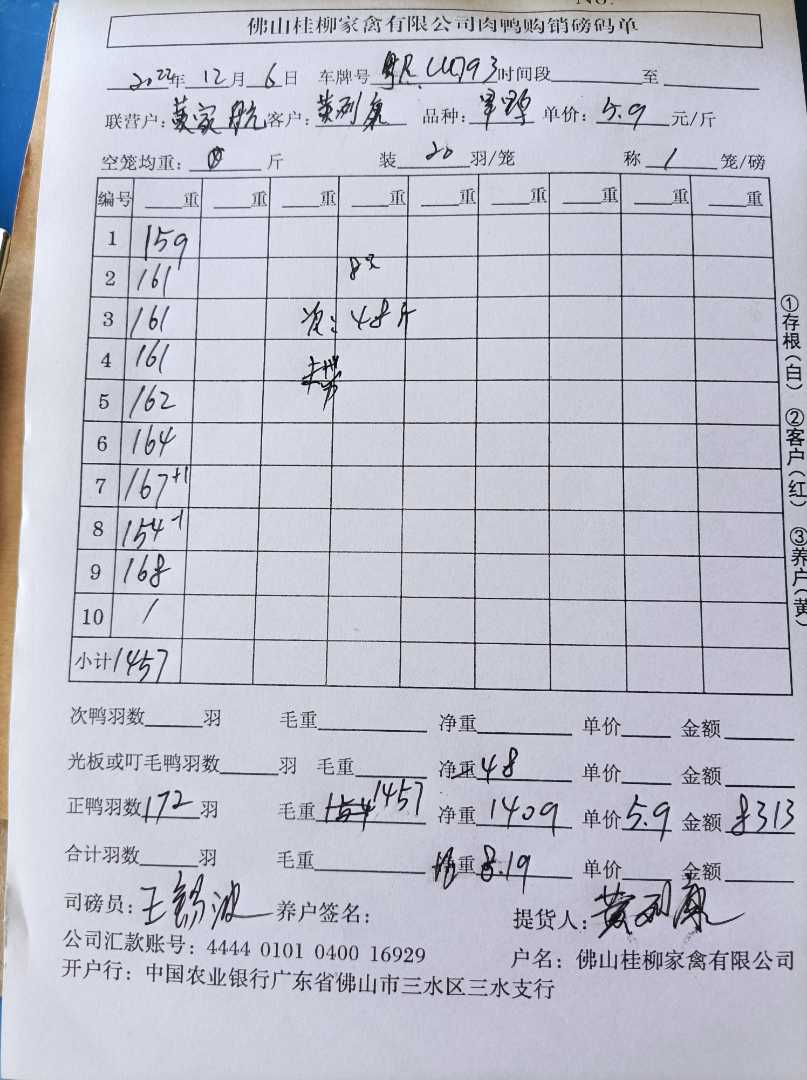 No:
佛山桂柳家禽有限公司肉鸭购销磅码单
2022年 12月 6日 车牌号 时间段 至
联营户：黄家航 客户：黄列康 品种： 单价：5.9 元/斤
空笼均重：0 斤 装 20 羽/笼 称 1 笼/磅
编号 重 重 重 重 重 重 重 重 重
1 159
2 161
3 161 48斤
4 161
5 162
6 164
7 167+1
8 154-1
9 168
10 /
小计 1457
次鸭羽数 羽 毛重 净重 单价 金额
光板或叮毛鸭羽数 羽 毛重 净重 48 单价 金额
正鸭羽数 172 羽 毛重 1457 净重 1409 单价 5.9 金额 8313
合计羽数 羽 毛重 重 8.19 单价 金额
司磅员：王锡波 养户签名： 提货人：黄列康
公司汇款账号：4444 0101 0400 16929 户名：佛山桂柳家禽有限公司
开户行：中国农业银行广东省佛山市三水区三水支行
①存根（白） ②客户（红） ③养户（黄）